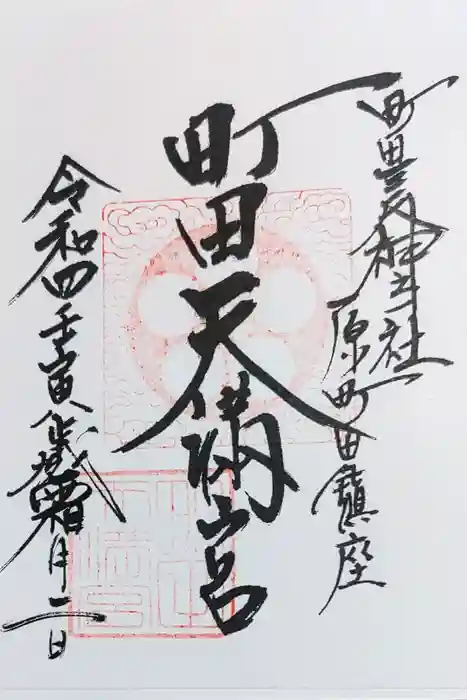 神社 原町田鎮座
町田天満宮
令和四壬寅歳霜月二日